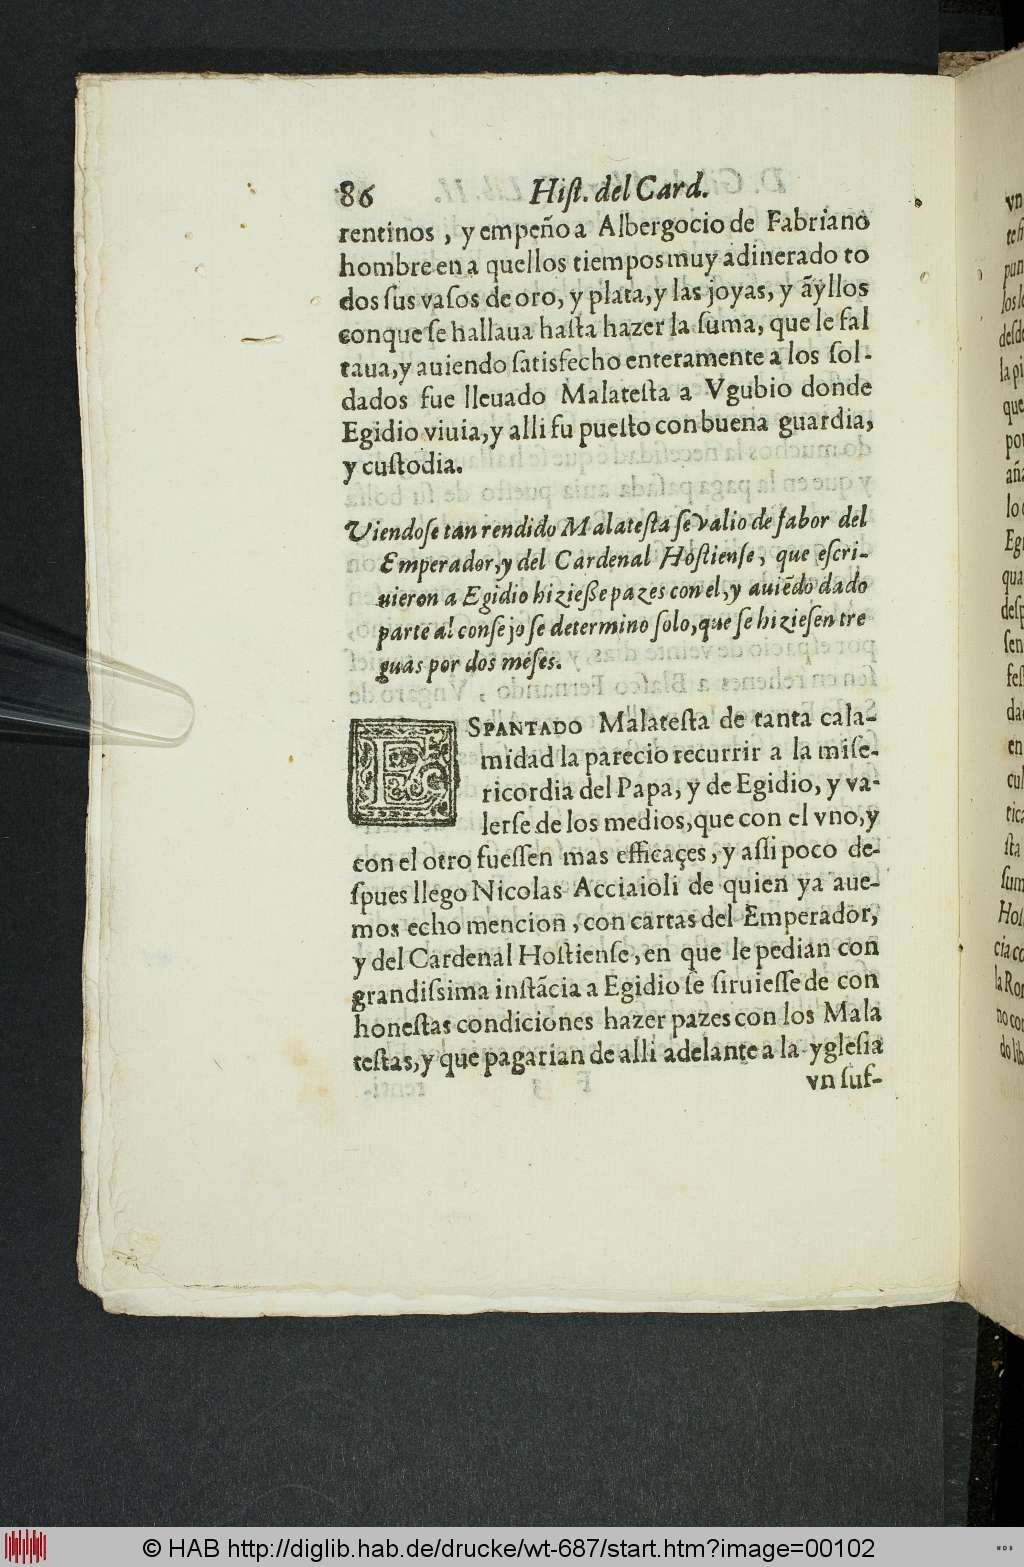 86 Hiſt. del Card.
rentinos, y empeño a Albergocio de Fabriano
hombre en a quellos tiempos muy adinerado to
dos ſus vaſos de oro, y plata, y las joyas, y ãyllos
conque ſe hallaua haſta hazer la ſuma, que le fal
taua, y auiendo ſatisfecho enteramente a los ſol-
dados fue lleuado Malateſta a Vgubio donde
Egidio viuia, y alli fu pueſto con buena guardia,
y cuſtodia.
Viendoſe tan rendido Malateſta ſe valio de fabor del
Emperador, y del Cardenal Hoſtienſe, que eſcri-
uieron a Egidio hizieße pazes con el, y auiẽdo dado
parte al conſejo ſe determino ſolo, que ſe hizieſen tre
guas por dos meſes.
ESPANTADO Malateſta de tanta cala-
midad la parecio recurrir a la miſe-
ricordia del Papa, y de Egidio, y va-
lerſe de los medios, que con el vno, y
con el otro fueſſen mas efficaçes, y aſſi poco de-
ſpues llego Nicolas Acciaioli de quien ya aue-
mos echo mencion, con cartas del Emperador,
y del Cardenal Hoſtienſe, en que le pedian con
grandiſsima inſtãcia a Egidio ſe ſiruieſſe de con
honeſtas condiciones hazer pazes con los Mala
teſtas, y que pagarian de alli adelante a la ygleſia
vn ſuf-
© HAB http://diglib.hab.de/drucke/wt-687/start.htm?image=00102